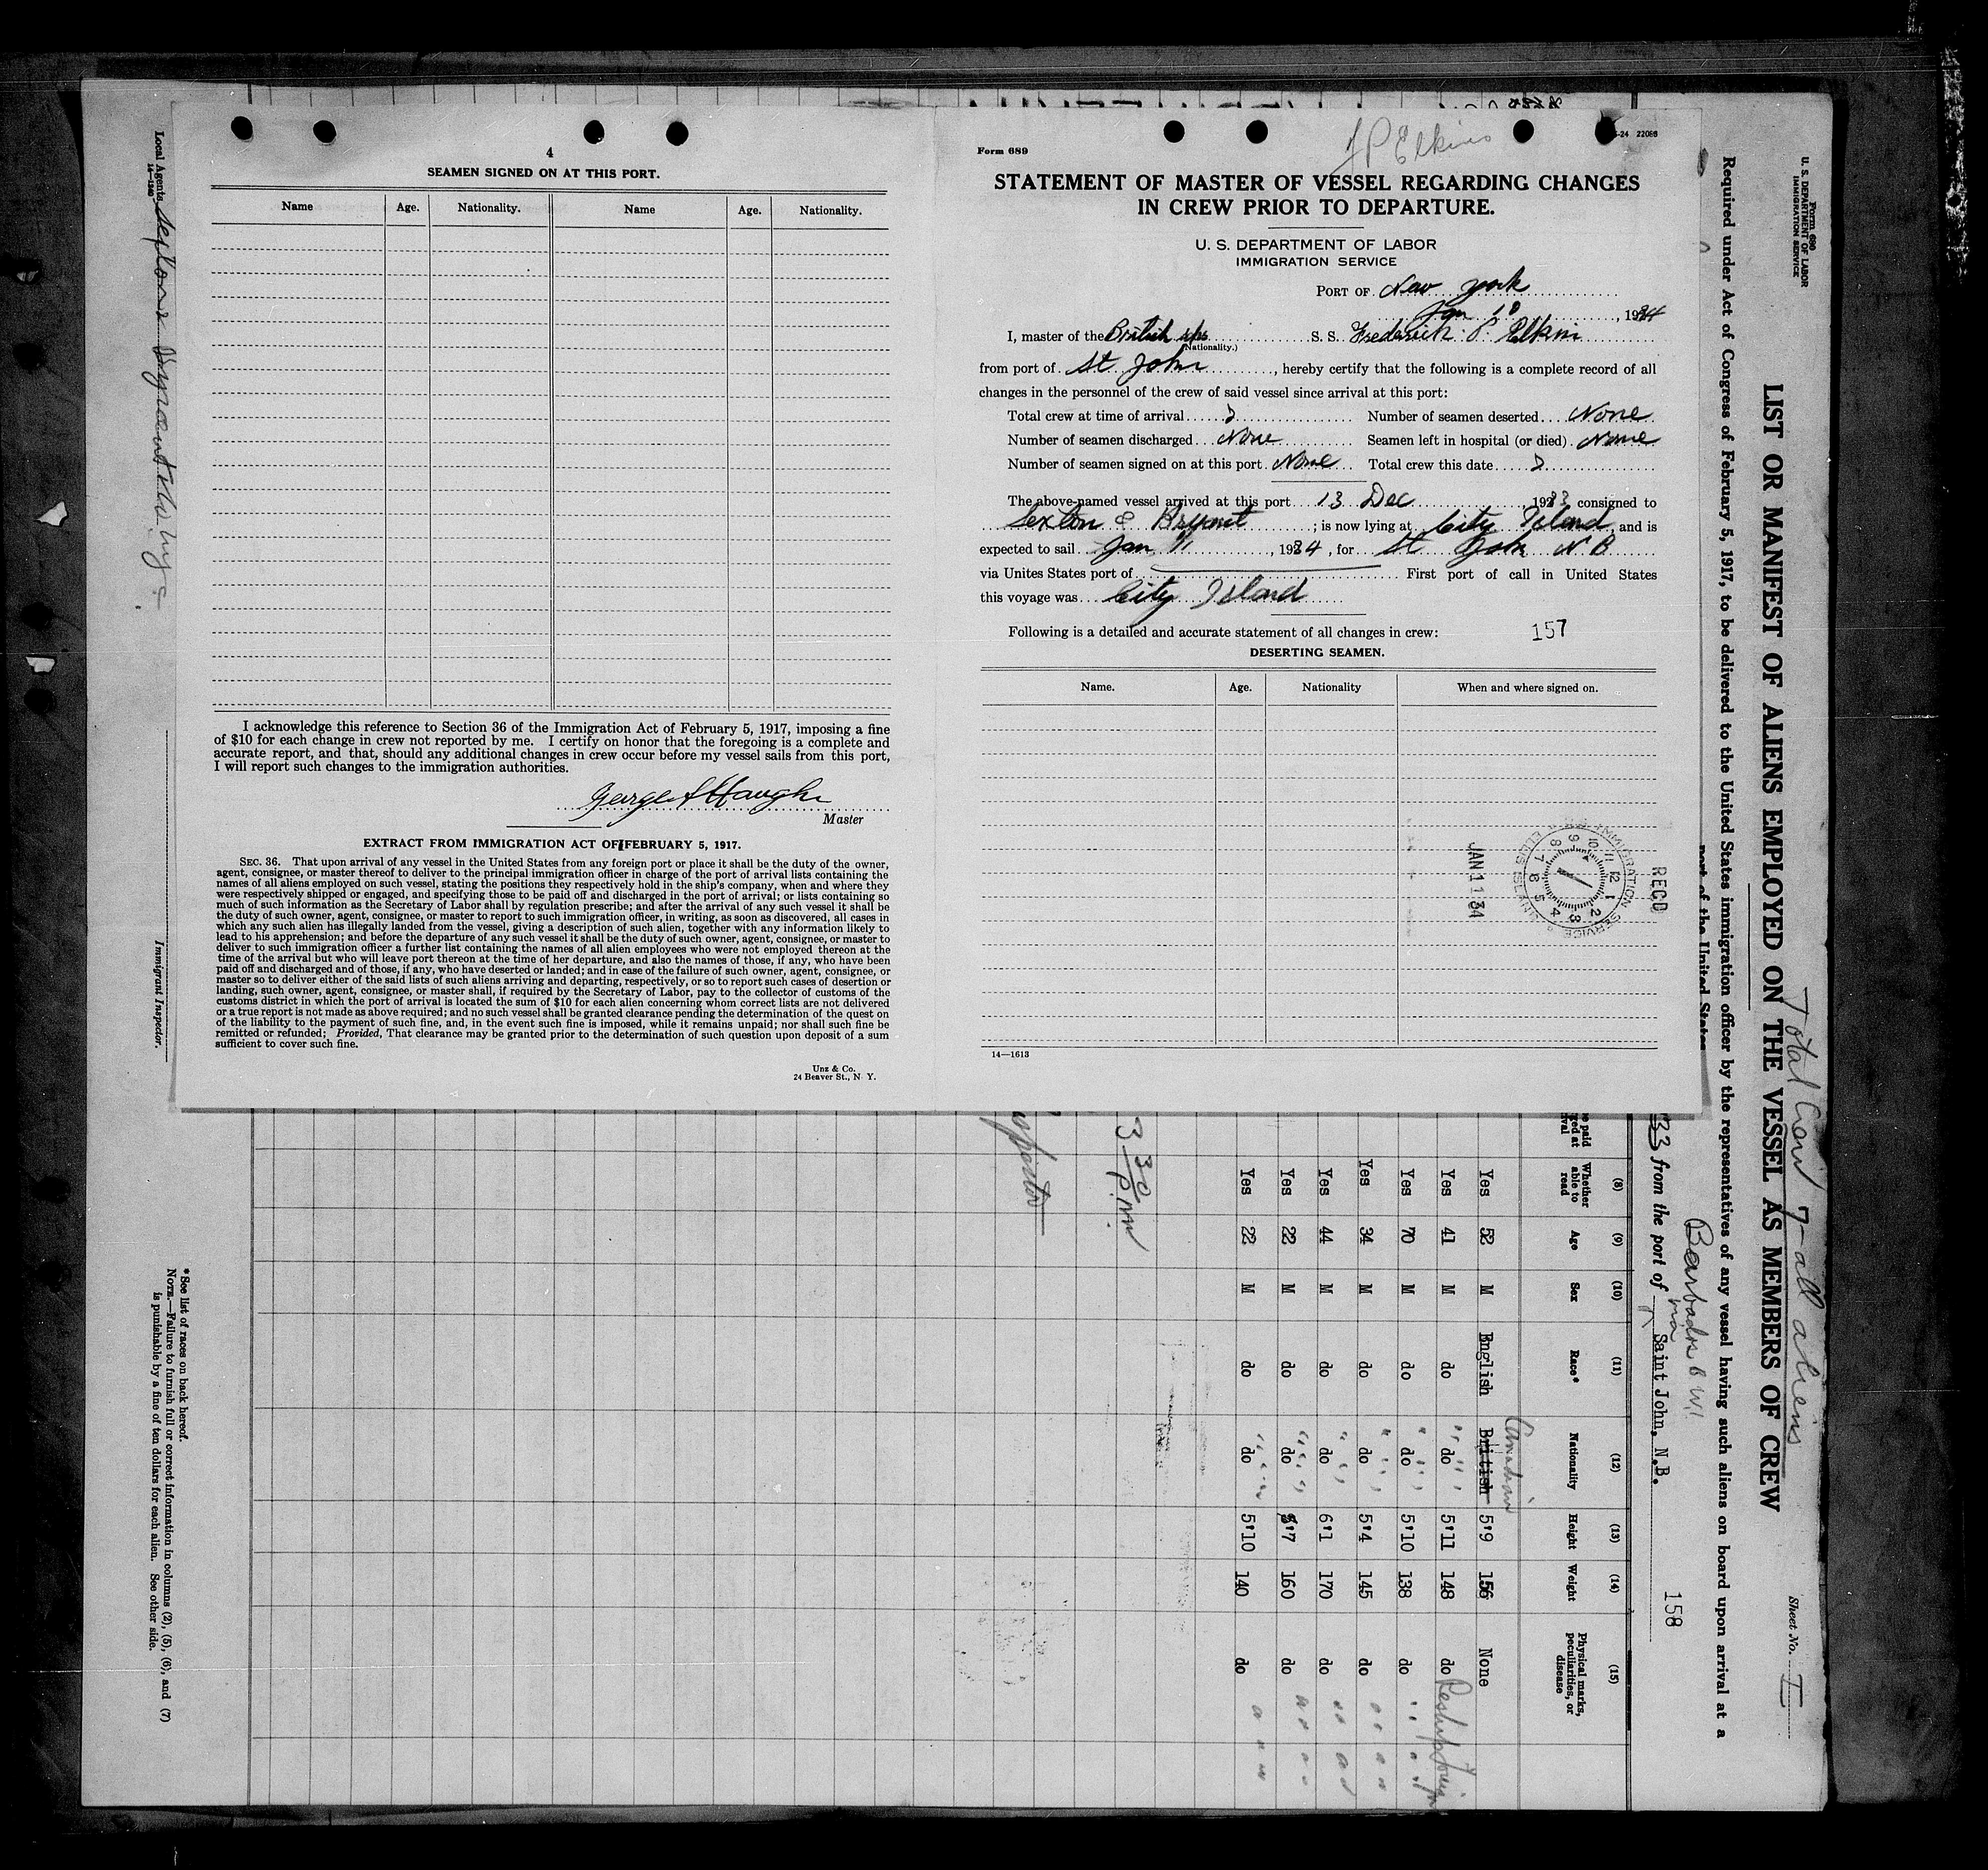 4
SEAMEN SIGNED ON AT THIS PORT.
Name Age. Nationality. Name Age. Nationality.
I acknowledge this reference to Section 36 of the Immigration Act of February 5, 1917, imposing a fine
of $10 for each change in crew not reported by me. I certify on honor that the foregoing is a complete and
accurate report, and that, should any additional changes in crew occur before my vessel sails from this port,
I will report such changes to the immigration authorities.
Master
EXTRACT FROM IMMIGRATION ACT OF FEBRUARY 5, 1917.
SEC. 36. That upon arrival of any vessel in the United States from any foreign port or place it shall be the duty of the owner,
agent, consignee, or master thereof to deliver to the principal immigration officer in charge of the port of arrival lists containing the
names of all aliens employed on such vessel, stating the positions they respectively hold in the ship's company, when and where they
were respectively shipped or engaged, and specifying those to be paid off and discharged in the port of arrival; or lists containing so
much of such information as the Secretary of Labor shall by regulation prescribe; and after the arrival of any such vessel it shall be
the duty of such owner, agent, consignee, or master to report to such immigration officer, in writing, as soon as discovered, all cases in
which any such alien has illegally landed from the vessel, giving a description of such alien, together with any information likely to
lead to his apprehension; and before the departure of any such vessel it shall be the duty of such owner, agent, consignee, or master to
deliver to such immigration officer a further list containing the names of all alien employees who were not employed thereon at the
time of the arrival but who will leave port thereon at the time of her departure, and also the names of those, if any, who have been
paid off and discharged and of those, if any, who have deserted or landed; and in case of the failure of such owner, agent, consignee, or
master so to deliver either of the said lists of such aliens arriving and departing, respectively, or so to report such cases of desertion or
landing, such owner, agent, consignee, or master shall, if required by the Secretary of Labor, pay to the collector of customs of the
customs district in which the port of arrival is located the sum of $10 for each alien concerning whom correct lists are not delivered
or a true report is not made as above required; and no such vessel shall be granted clearance pending the determination of the quest on
of the liability to the payment of such fine, and, in the event such fine is imposed, while it remains unpaid; nor shall such fine be
remitted or refunded; Provided, That clearance may be granted prior to the determination of such question upon deposit of a sum
sufficient to cover such fine.
Unz & Co.
24 Beaver St., N. Y.
F P Elkins
Form 689
-24 22086
STATEMENT OF MASTER OF VESSEL REGARDING CHANGES
IN CREW PRIOR TO DEPARTURE.
U. S. DEPARTMENT OF LABOR
IMMIGRATION SERVICE
PORT OF New York
Jan 10, 1934
I, master of the British S. S. Frederick P. Elkin
(Nationality.)
from port of St John, hereby certify that the following is a complete record of all
changes in the personnel of the crew of said vessel since arrival at this port:
Total crew at time of arrival 7 Number of seamen deserted None
Number of seamen discharged None Seamen left in hospital (or died) None
Number of seamen signed on at this port None Total crew this date 7
The above-named vessel arrived at this port 13 Dec 1933 consigned to
Sexton & Bryant; is now lying at City Island, and is
expected to sail Jan 11, 1934, for St John N B
via Unites States port of First port of call in United States
this voyage was City Island
Following is a detailed and accurate statement of all changes in crew: 157
DESERTING SEAMEN.
Name. Age. Nationality When and where signed on.
RECD
IMMIGRATION SERVICE ELLIS ISLAND
JAN 11 34
14—1613
Form 690
U. S. DEPARTMENT OF LABOR
IMMIGRATION SERVICE
Sheet No. I
Total Crew 7 - all aliens
LIST OR MANIFEST OF ALIENS EMPLOYED ON THE VESSEL AS MEMBERS OF CREW
Required under Act of Congress of February 5, 1917, to be delivered to the United States immigration officer by the representatives of any vessel having such aliens on board upon arrival at a
port of the United States
Barbados BWI
via
33 from the port of Saint John, N.B.
158
(8) (9) (10) (11) (12) (13) (14) (15)
Whether able to read Age Sex Race* Nationality Height Weight Physical marks, peculiarities, or disease
Canadian
Yes 52 M English British 5'9 156 None
Yes 41 M do do 5'11 148 do
Yes 70 M do do 5'10 138 do
Yes 34 M do do 5'4 145 do
Yes 44 M do do 6'1 170 do
Yes 22 M do do 5'7 160 do
Yes 22 M do do 5'10 140 do
3 30 P.M.
Local Agents
14—1240
Immigrant Inspector.
*See list of races on back hereof.
NOTE.—Failure to furnish full or correct information in columns (2), (5), (6), and (7)
is punishable by a fine of ten dollars for each alien. See other side.